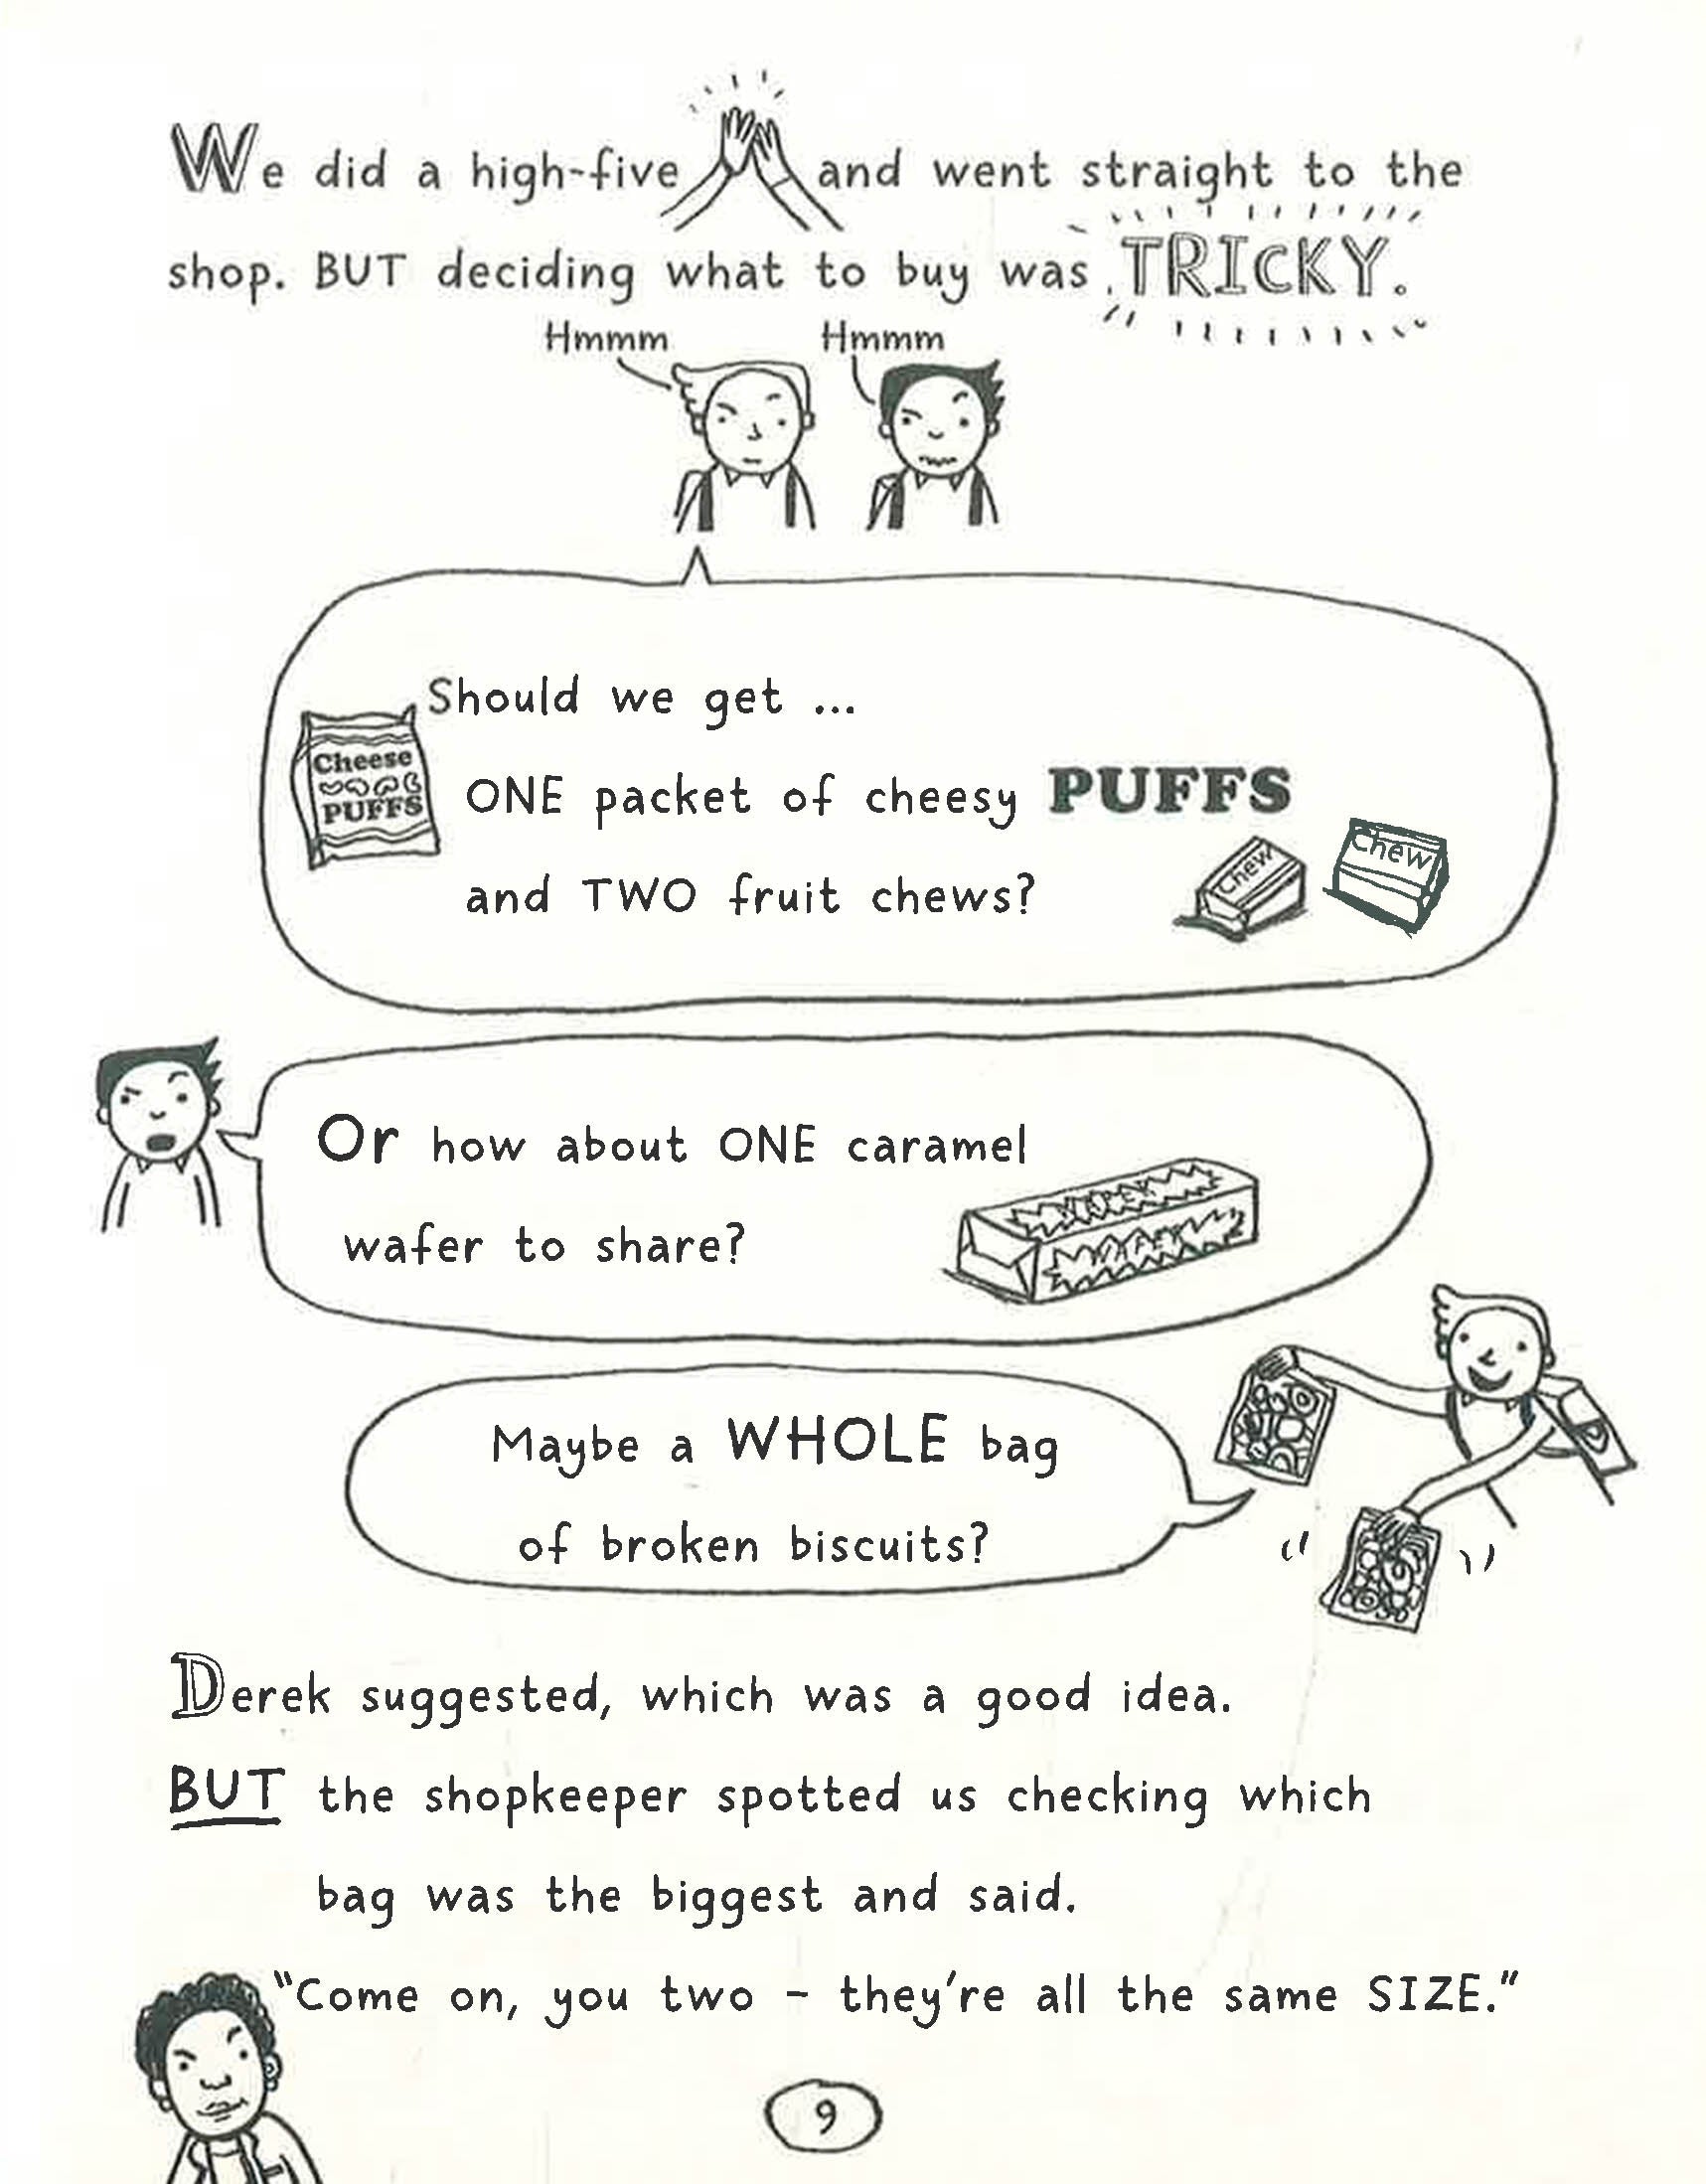 We did a high-five and went straight to the
shop. BUT deciding what to buy was TRICKY.
Hmmm
Hmmm
Should we get ...
Cheese
PUFFS
ONE packet of cheesy PUFFS
Chew
Chew
and TWO fruit chews?
Or how about ONE caramel
WAFER
WAFER
wafer to share?
Maybe a WHOLE bag
of broken biscuits?
Derek suggested, which was a good idea.
BUT the shopkeeper spotted us checking which
bag was the biggest and said.
"Come on, you two – they're all the same SIZE."
9